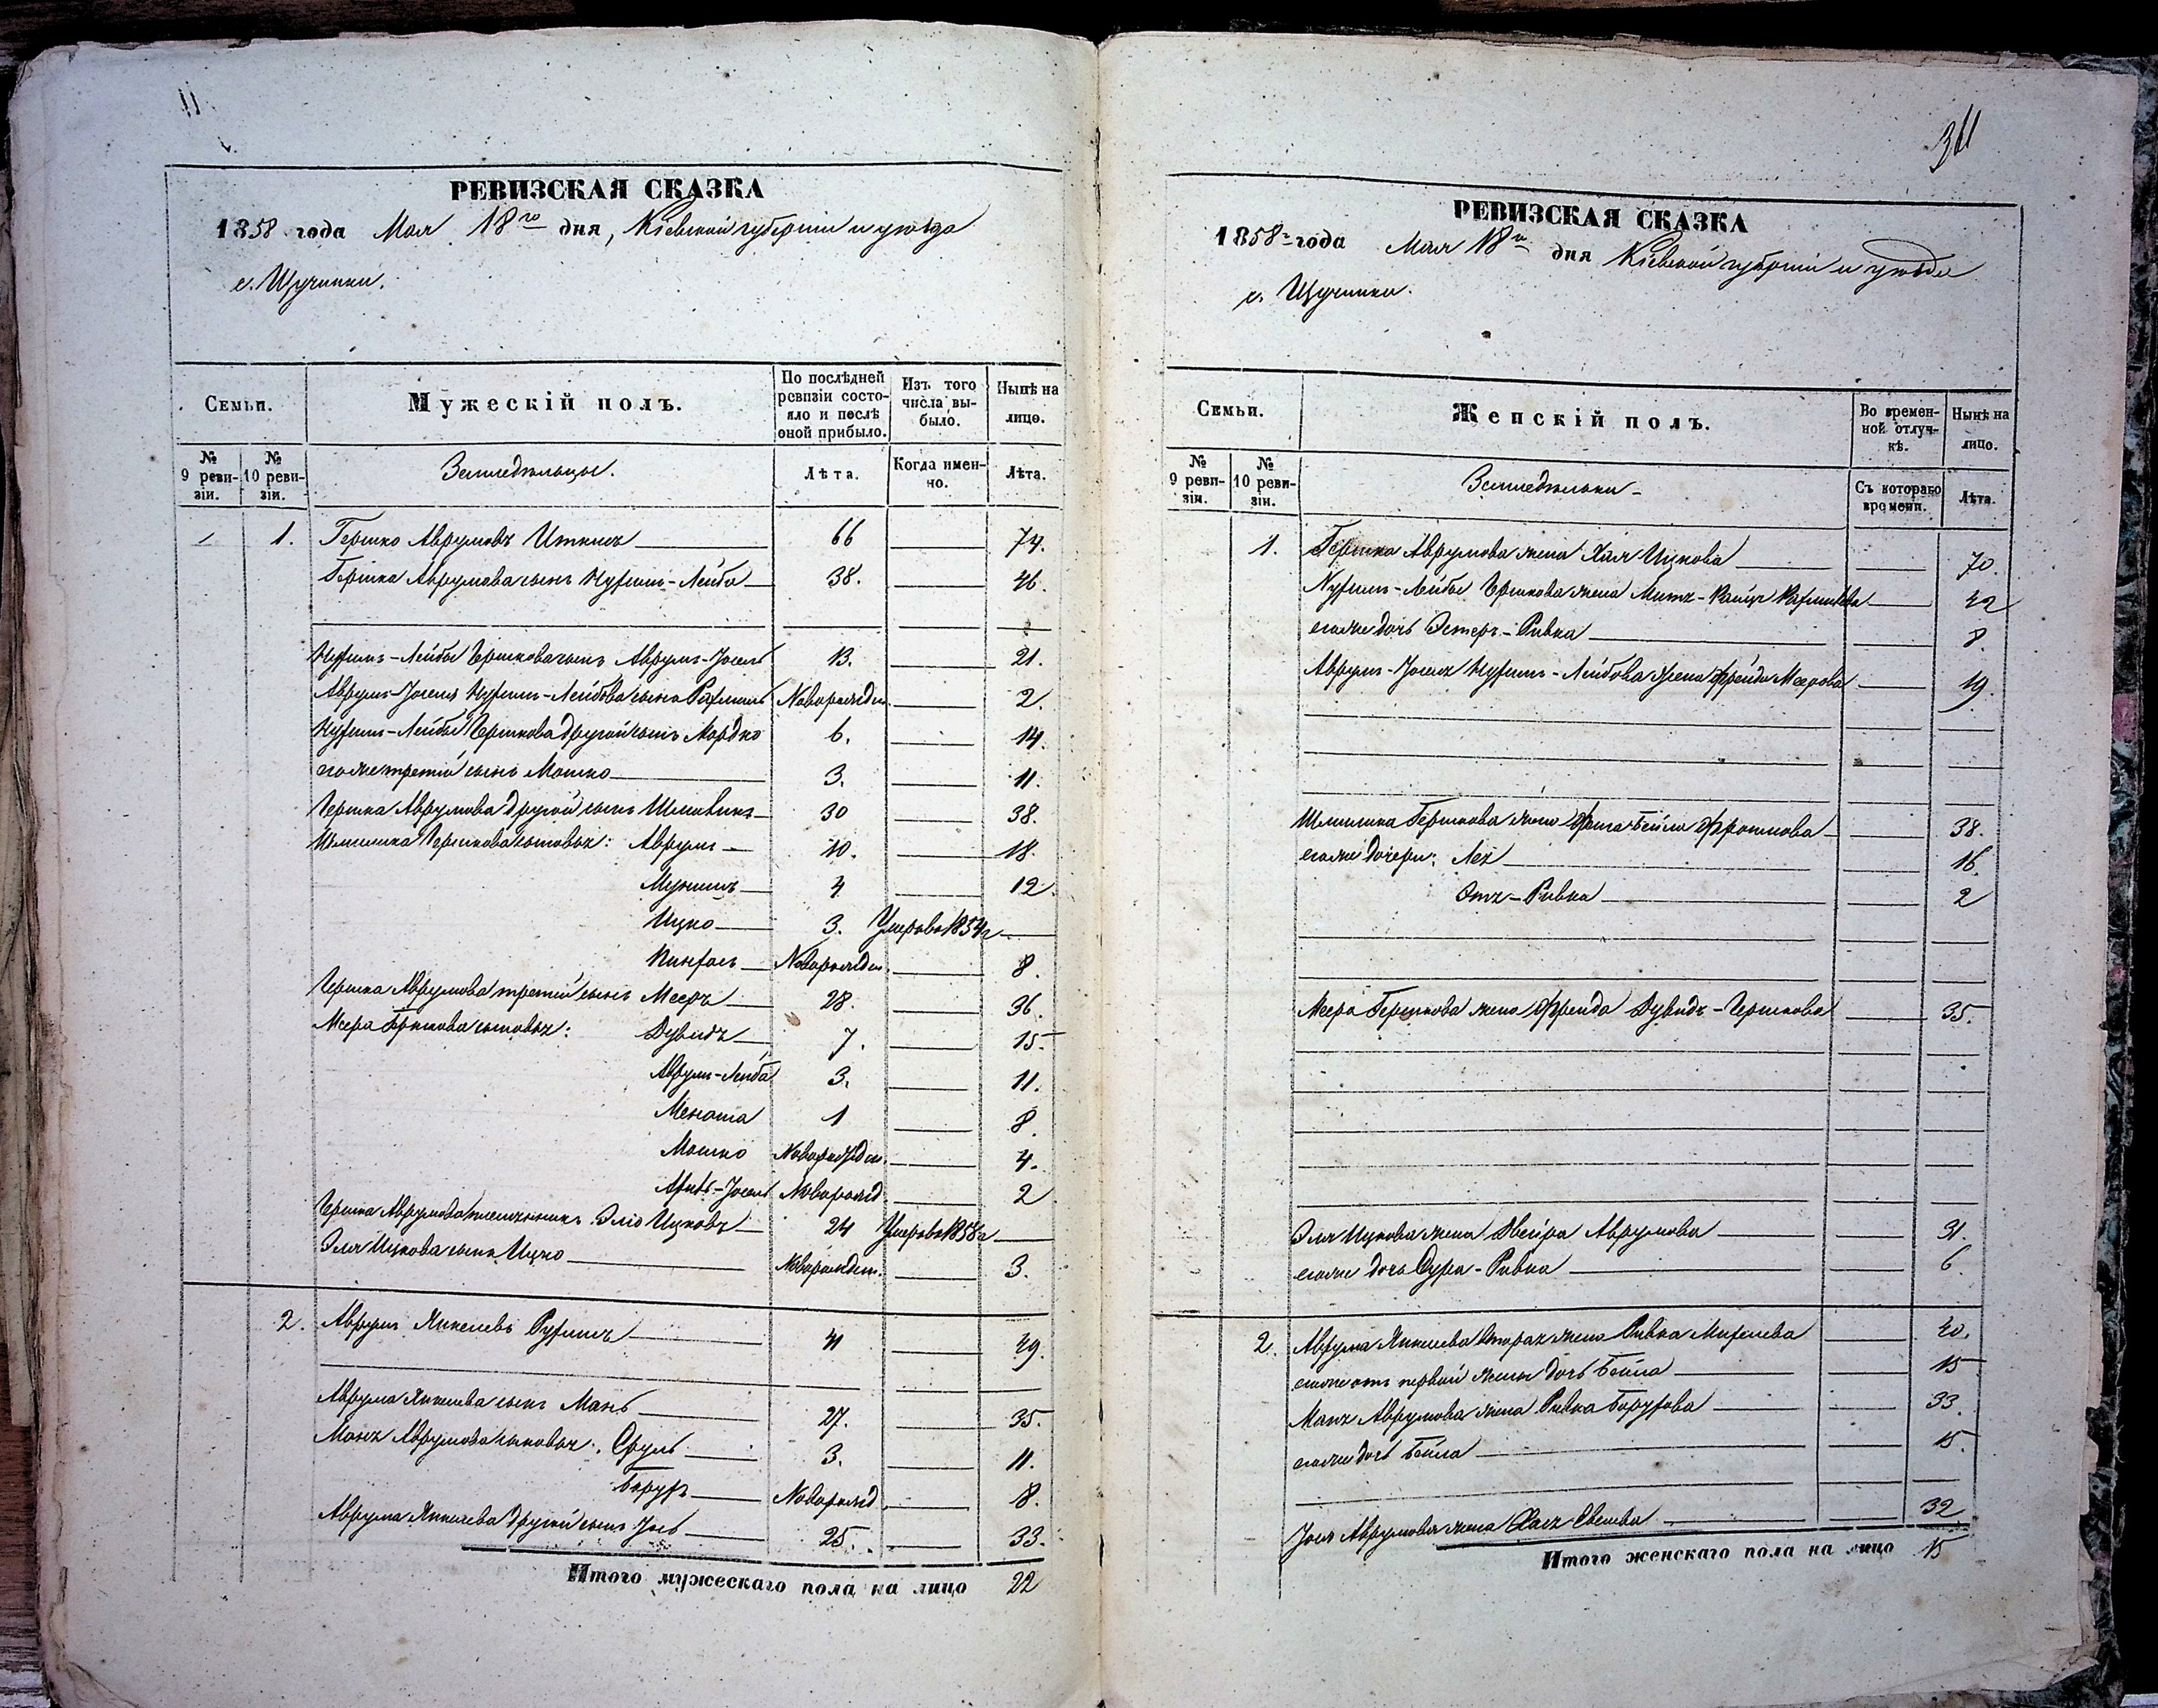 11
РЕВИЗСКАЯ СКАЗКА
1858 года Мая 18го дня, Кіевской губерніи и уѣзда
с. Щучинки.
Семьи.
Мужескій полъ.
По послѣдней ревизіи состояло и послѣ оной прибыло.
Изъ того числа выбыло.
Нынѣ на лицо.
№ 9 ревизіи.
№ 10 ревизіи.
Земледѣльцы.
Лѣта.
Когда именно.
Лѣта.
1. Гершко Аврумовъ 66 74.
Гершка Аврумова сынъ Нухимъ-Лейба 38. 46.
Нухимъ-Лейбы Гершкова сынъ Аврумъ-Іосель 13. 21.
Аврумъ-Іоселя Нухимъ-Лейбова сынъ Рахмиль Новорожден. 2.
Нухимъ-Лейбы Гершкова другой сынъ Мордко 6. 14.
его же третій сынъ Мошко 3. 11.
Гершка Аврумова другой сынъ 30 38.
Гершкова сыновья: Аврумъ 10. 18.
4 12.
Ицко 3. Умеръ въ 1854 г
Пинхасъ Новорожден. 8.
Гершка Аврумова третій сынъ Мееръ 28. 36.
Меера Гершкова сыновья: Дувидъ 7. 15.
Аврумъ-Лейба 3. 11.
Менаша 1 8.
Мошко Новорожден. 4.
Іосель Новорожд. 2
Гершка Аврумова племянникъ Эліо Ицковъ 24 Умеръ въ 1858 г
Эля Ицкова сынъ Ицко Новорожден. 3.
2. Аврумъ Янкелевъ 41 49.
Аврума Янкелева сынъ Мань 27. 35.
Маня Аврумова сыновья: Сруль 3. 11.
Борухъ Новорожд. 8.
Аврума Янкелева другой сынъ Іось 25. 33.
Итого мужескаго пола на лицо 22
361
РЕВИЗСКАЯ СКАЗКА
1858 года Мая 18го дня Кіевской губерніи и уѣзда
с. Щучинки.
Семьи.
Женскій полъ.
Во временной отлучкѣ.
Нынѣ на лицо.
№ 9 ревизіи.
№ 10 ревизіи.
Земледѣльки
Съ котораго времени.
Лѣта.
1. Гершка Аврумова жена Хая Ицкова 70.
Нухимъ-Лейбы Гершкова жена 42
его же дочь Эстеръ-Ривка 8.
Аврумъ-Іоселя Нухимъ-Лейбова жена Фрейда Меерова 19.
Гершкова жена Фига-Бейла Фроимова 38.
его же дочери: Лея 16.
Ривка 2
Меера Гершкова жена Фрейда Дувидъ-Гершкова 35.
Эля Ицкова жена Двейра Аврумова 31.
его же дочь Сура-Ривка 6.
2. Аврума Янкелева вторая жена Ривка 40.
его же отъ первой жены дочь Бейла 15
Маня Аврумова жена Ривка Борухова 33.
его же дочь Бейла 15.
Іося Аврумова жена Хася 32
Итого женскаго пола на лицо 15